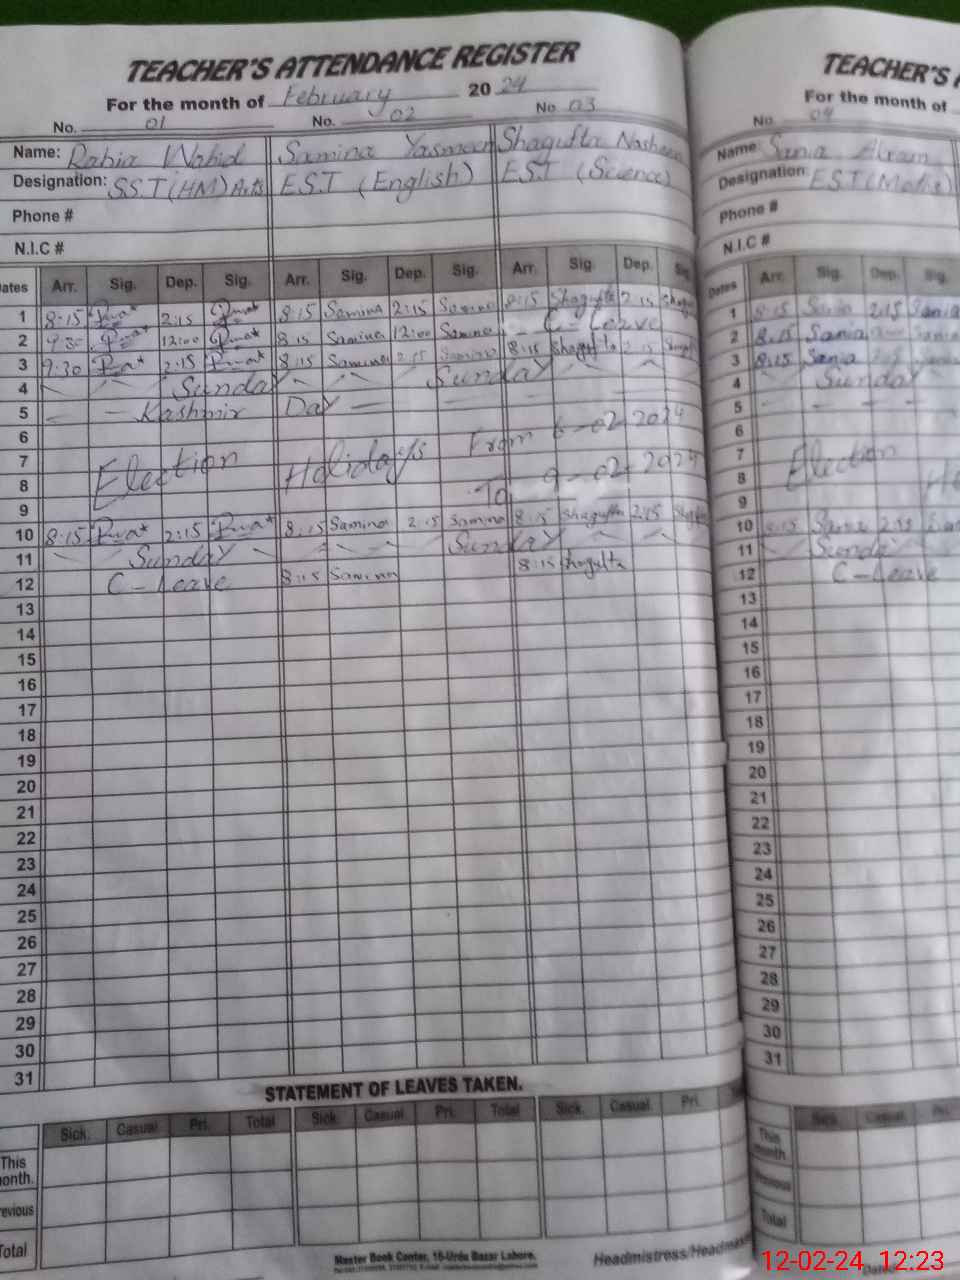 TEACHER'S ATTENDANCE REGISTER
For the month of February 2024
No. 01 No. 02 No 03
Name: Rabia Wahid Samina Yasmeen Shagufta Nasheen
Designation: SS.T(HM) Arts E.S.T (English) E.S.T (Science)
Phone #
N.I.C #
Dates Arr. Sig. Dep. Sig. Arr. Sig. Dep. Sig. Arr. Sig. Dep. Sig.
1 8:15 2:15 8:15 Samina 2:15 Samina 8:15 Shagufta 2:15
2 12:00 8:15 Samina 12:00 Samina C-Leave
3 9:30 2:15 8:15 Samina 2:15 Samina 8:15 Shagufta 2:15
4 Sunday Sunday
5 Kashmir Day
6 From 6-02-2024
7 Election Holidays
8 To 9-02-2024
9
10 8:15 2:15 8:15 Samina 2:15 Samina 8:15 Shagufta 2:15
11 Sunday Sunday
12 C-Leave 8:15 Samina 8:15 Shagufta
13
14
15
16
17
18
19
20
21
22
23
24
25
26
27
28
29
30
31
STATEMENT OF LEAVES TAKEN.
Sick. Casual Pri. Total Sick. Casual Pri. Total Sick. Casual Pri.
This
onth.
revious
Total
Master Book Center, 16-Urdu Bazar Lahore.
Headmistress/Headmas
TEACHER'S A
For the month of
No. 04
Name: Sania Akram
Designation: E.S.T (Maths)
Phone #
N.I.C #
Dates Arr. Sig. Dep. Sig.
1 8:15 Sania 2:15 Sania
2 8:15 Sania
3 8:15 Sania
4 Sunday
5
6
7 Election
8
9
10 8:15 Sania 2:15
11 Sunday
12 C-Leave
13
14
15
16
17
18
19
20
21
22
23
24
25
26
27
28
29
30
31
Sick. Casual
This
month.
Previous
Total
12-02-24 12:23